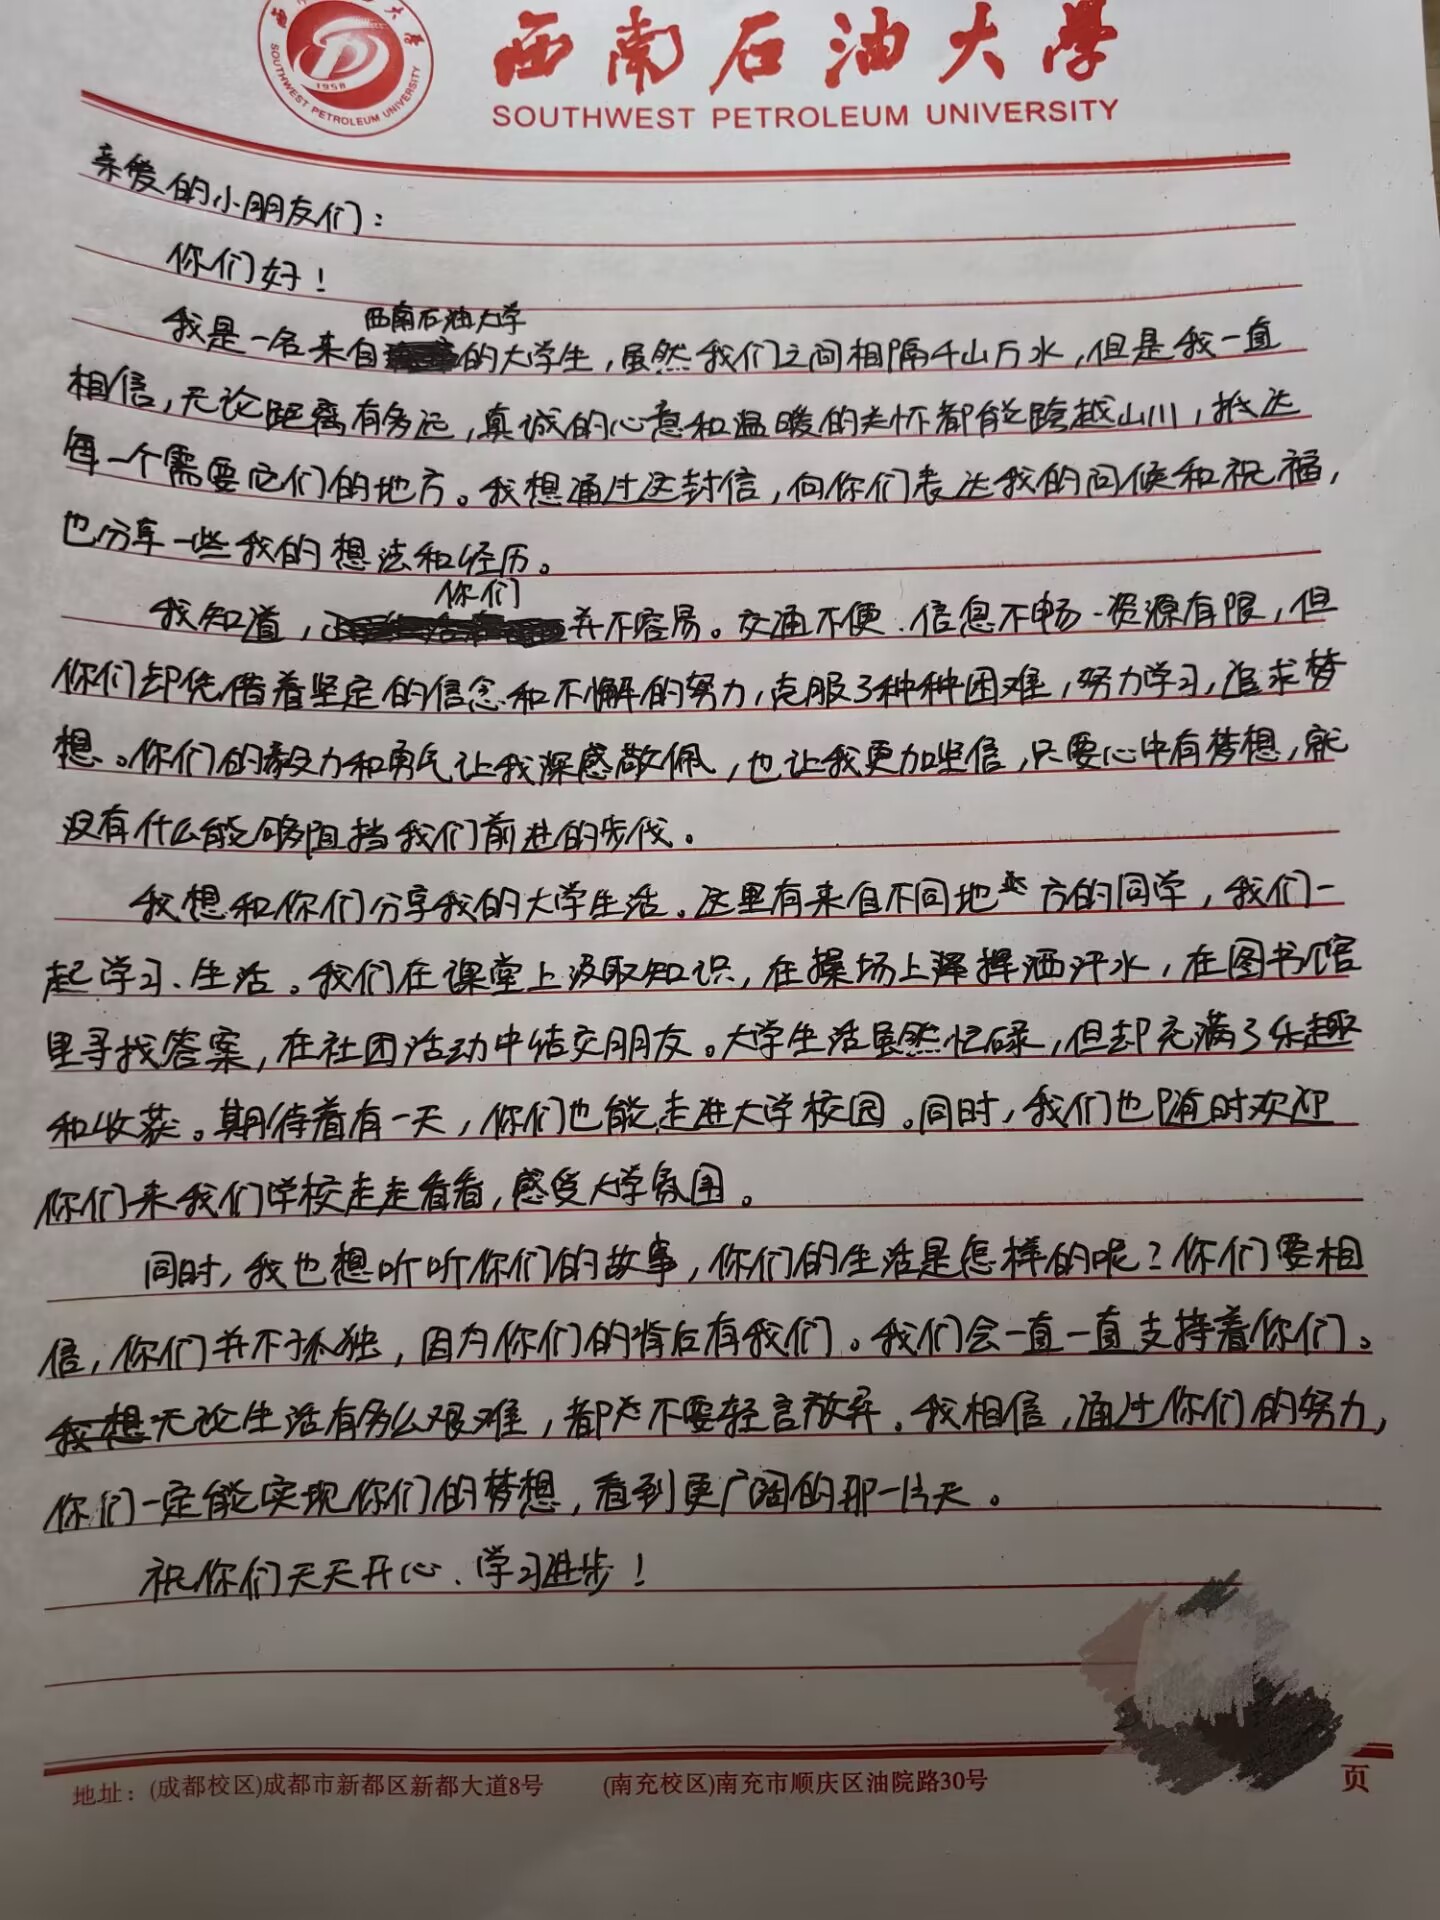 西南石油大学
SOUTHWEST PETROLEUM UNIVERSITY
SOUTHWEST PETROLEUM UNIVERSITY
1958
亲爱的小朋友们：
你们好！
西南石油大学
我是一名来自的大学生，虽然我们之间相隔千山万水，但是我一直
相信，无论距离有多远，真诚的心意和温暖的关怀都能跨越山川，抵达
每一个需要它们的地方。我想通过这封信，向你们表达我的问候和祝福，
也分享一些我的想法和经历。
你们
我知道，并不容易。交通不便、信息不畅、资源有限，但
你们却凭借着坚定的信念和不懈的努力，克服了种种困难，努力学习，追求梦
想。你们的毅力和勇气让我深感敬佩，也让我更加坚信，只要心中有梦想，就
没有什么能够阻挡我们前进的步伐。
我想和你们分享我的大学生活。这里有来自不同地方的同学，我们一
起学习、生活。我们在课堂上汲取知识，在操场上挥洒汗水，在图书馆
里寻找答案，在社团活动中结交朋友。大学生活虽然忙碌，但却充满了乐趣
和收获。期待着有一天，你们也能走进大学校园。同时，我们也随时欢迎
你们来我们学校走走看看，感受大学氛围。
同时，我也想听听你们的故事，你们的生活是怎样的呢？你们要相
信，你们并不孤独，因为你们的背后有我们。我们会一直一直支持着你们。
我想无论生活有多么艰难，都不要轻言放弃。我相信，通过你们的努力，
你们一定能实现你们的梦想，看到更广阔的那一片天。
祝你们天天开心、学习进步！
地址：(成都校区)成都市新都区新都大道8号 (南充校区)南充市顺庆区油院路30号
页